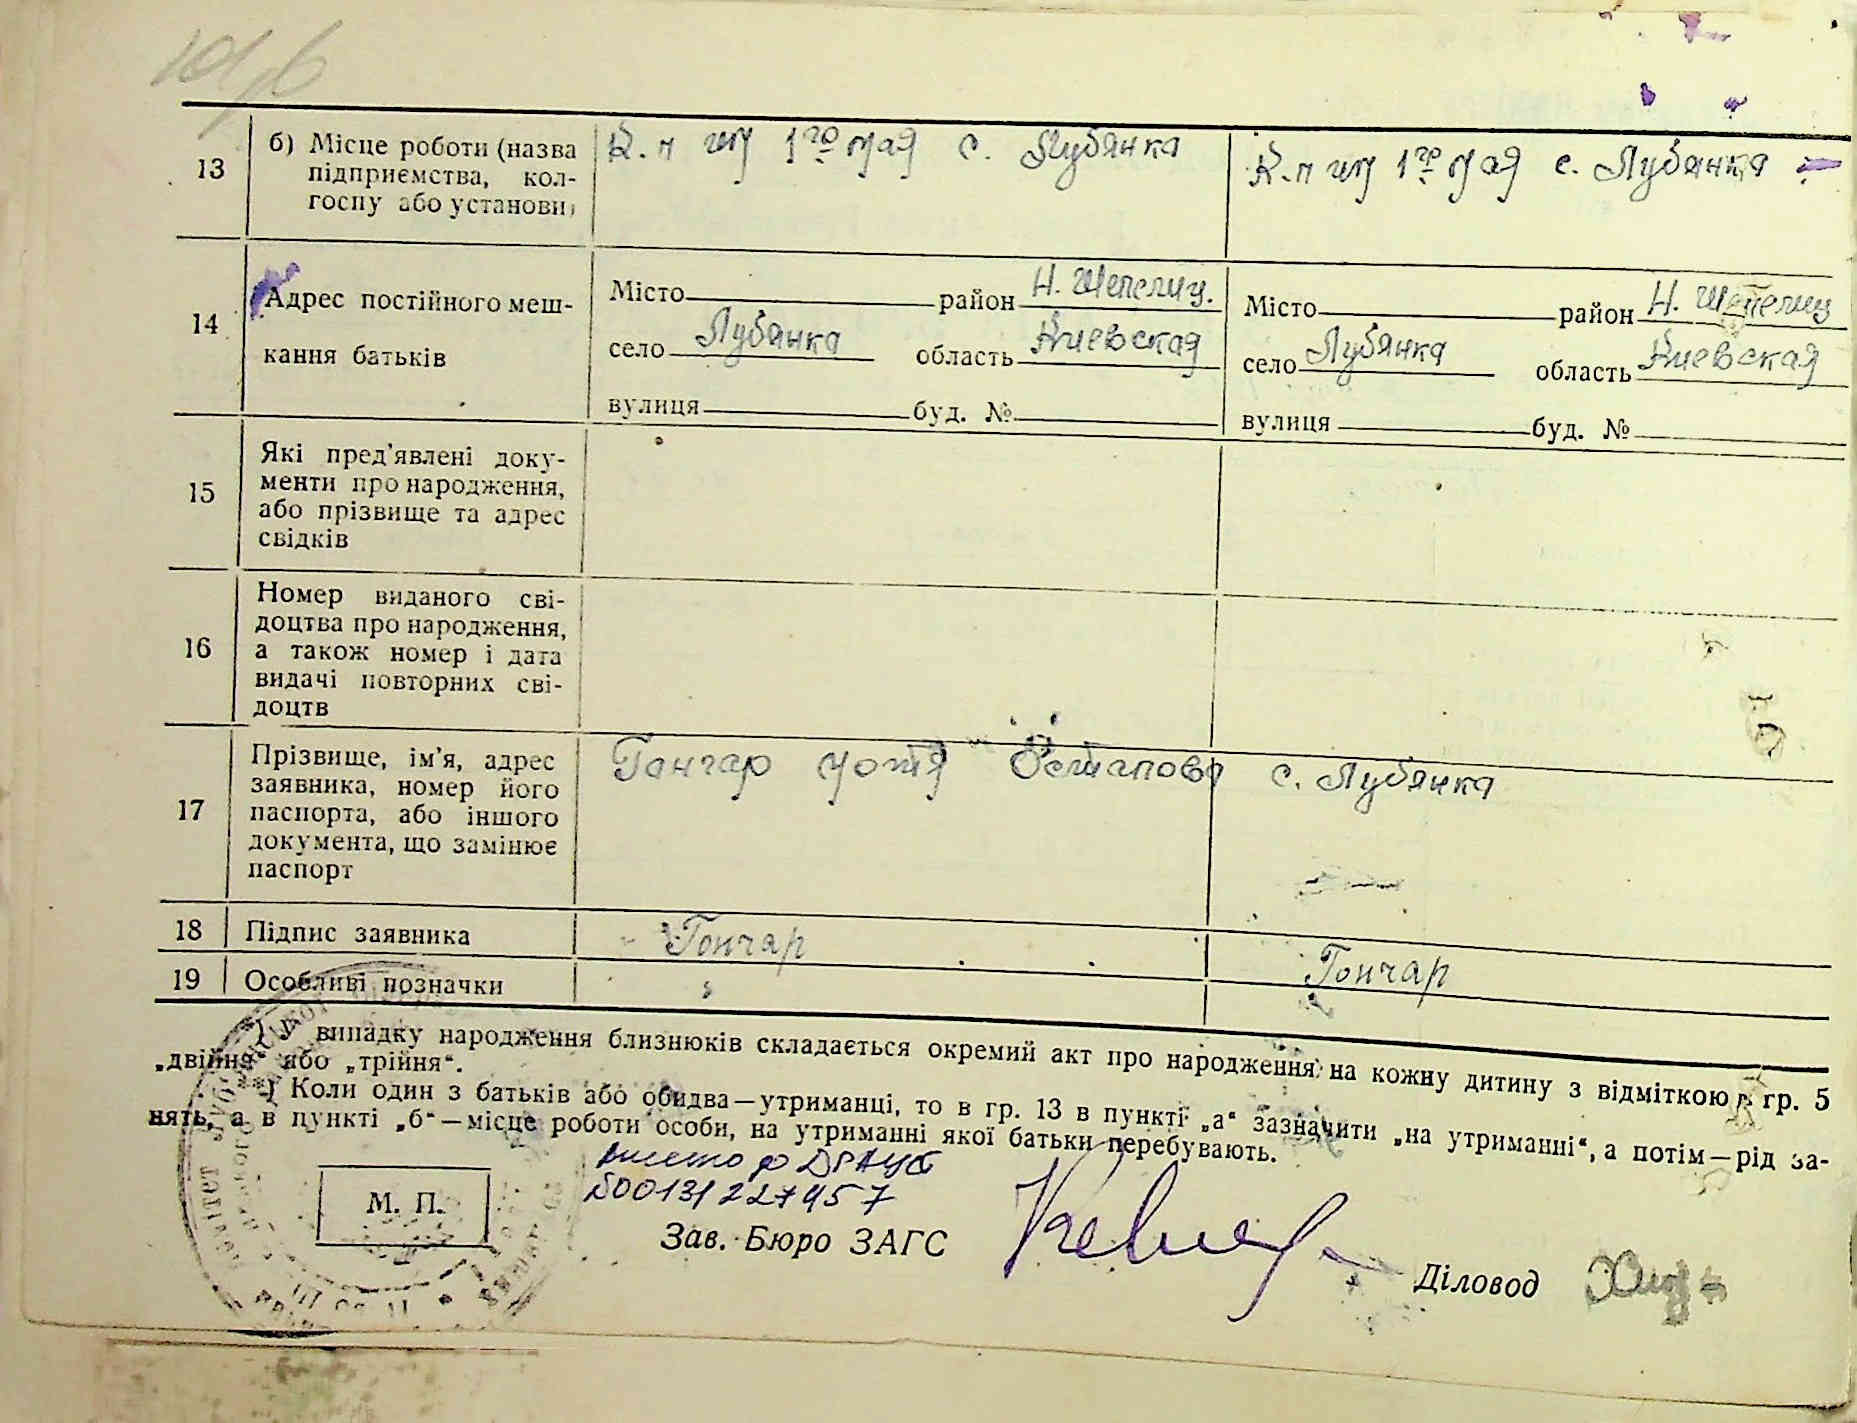 13 б) Місце роботи (назва підприємства, колгоспу або установи)
К.п им 1го мая с. Лубянка
К.п им 1го мая с. Лубянка
14 Адрес постійного меш-
кання батьків
Місто район Н. Шепелиц.
село Лубянка область Киевская
вулиця буд. №
Місто район Н. Шепелиц
село Лубянка область Киевская
вулиця буд. №
15 Які пред'явлені доку-
менти про народження,
або прізвище та адрес
свідків
16 Номер виданого сві-
доцтва про народження,
а також номер і дата
видачі повторних сві-
доцтв
17 Прізвище, ім'я, адрес
заявника, номер його
паспорта, або іншого
документа, що замінює
паспорт
Гончар Остапова с. Лубянка
18 Підпис заявника Гончар Гончар
19 Особливі позначки
випадку народження близнюків складається окремий акт про народження на кожну дитину з відміткою в гр. 5
„двійня" або „трійня".
Коли один з батьків або обидва—утриманці, то в гр. 13 в пункті „а" зазначити „на утриманні", а потім—рід за-
нять, а в пункті „б"—місце роботи особи, на утриманні якої батьки перебувають.
М. П.
до ДРАЦС
00131227457
Зав. Бюро ЗАГС Діловод